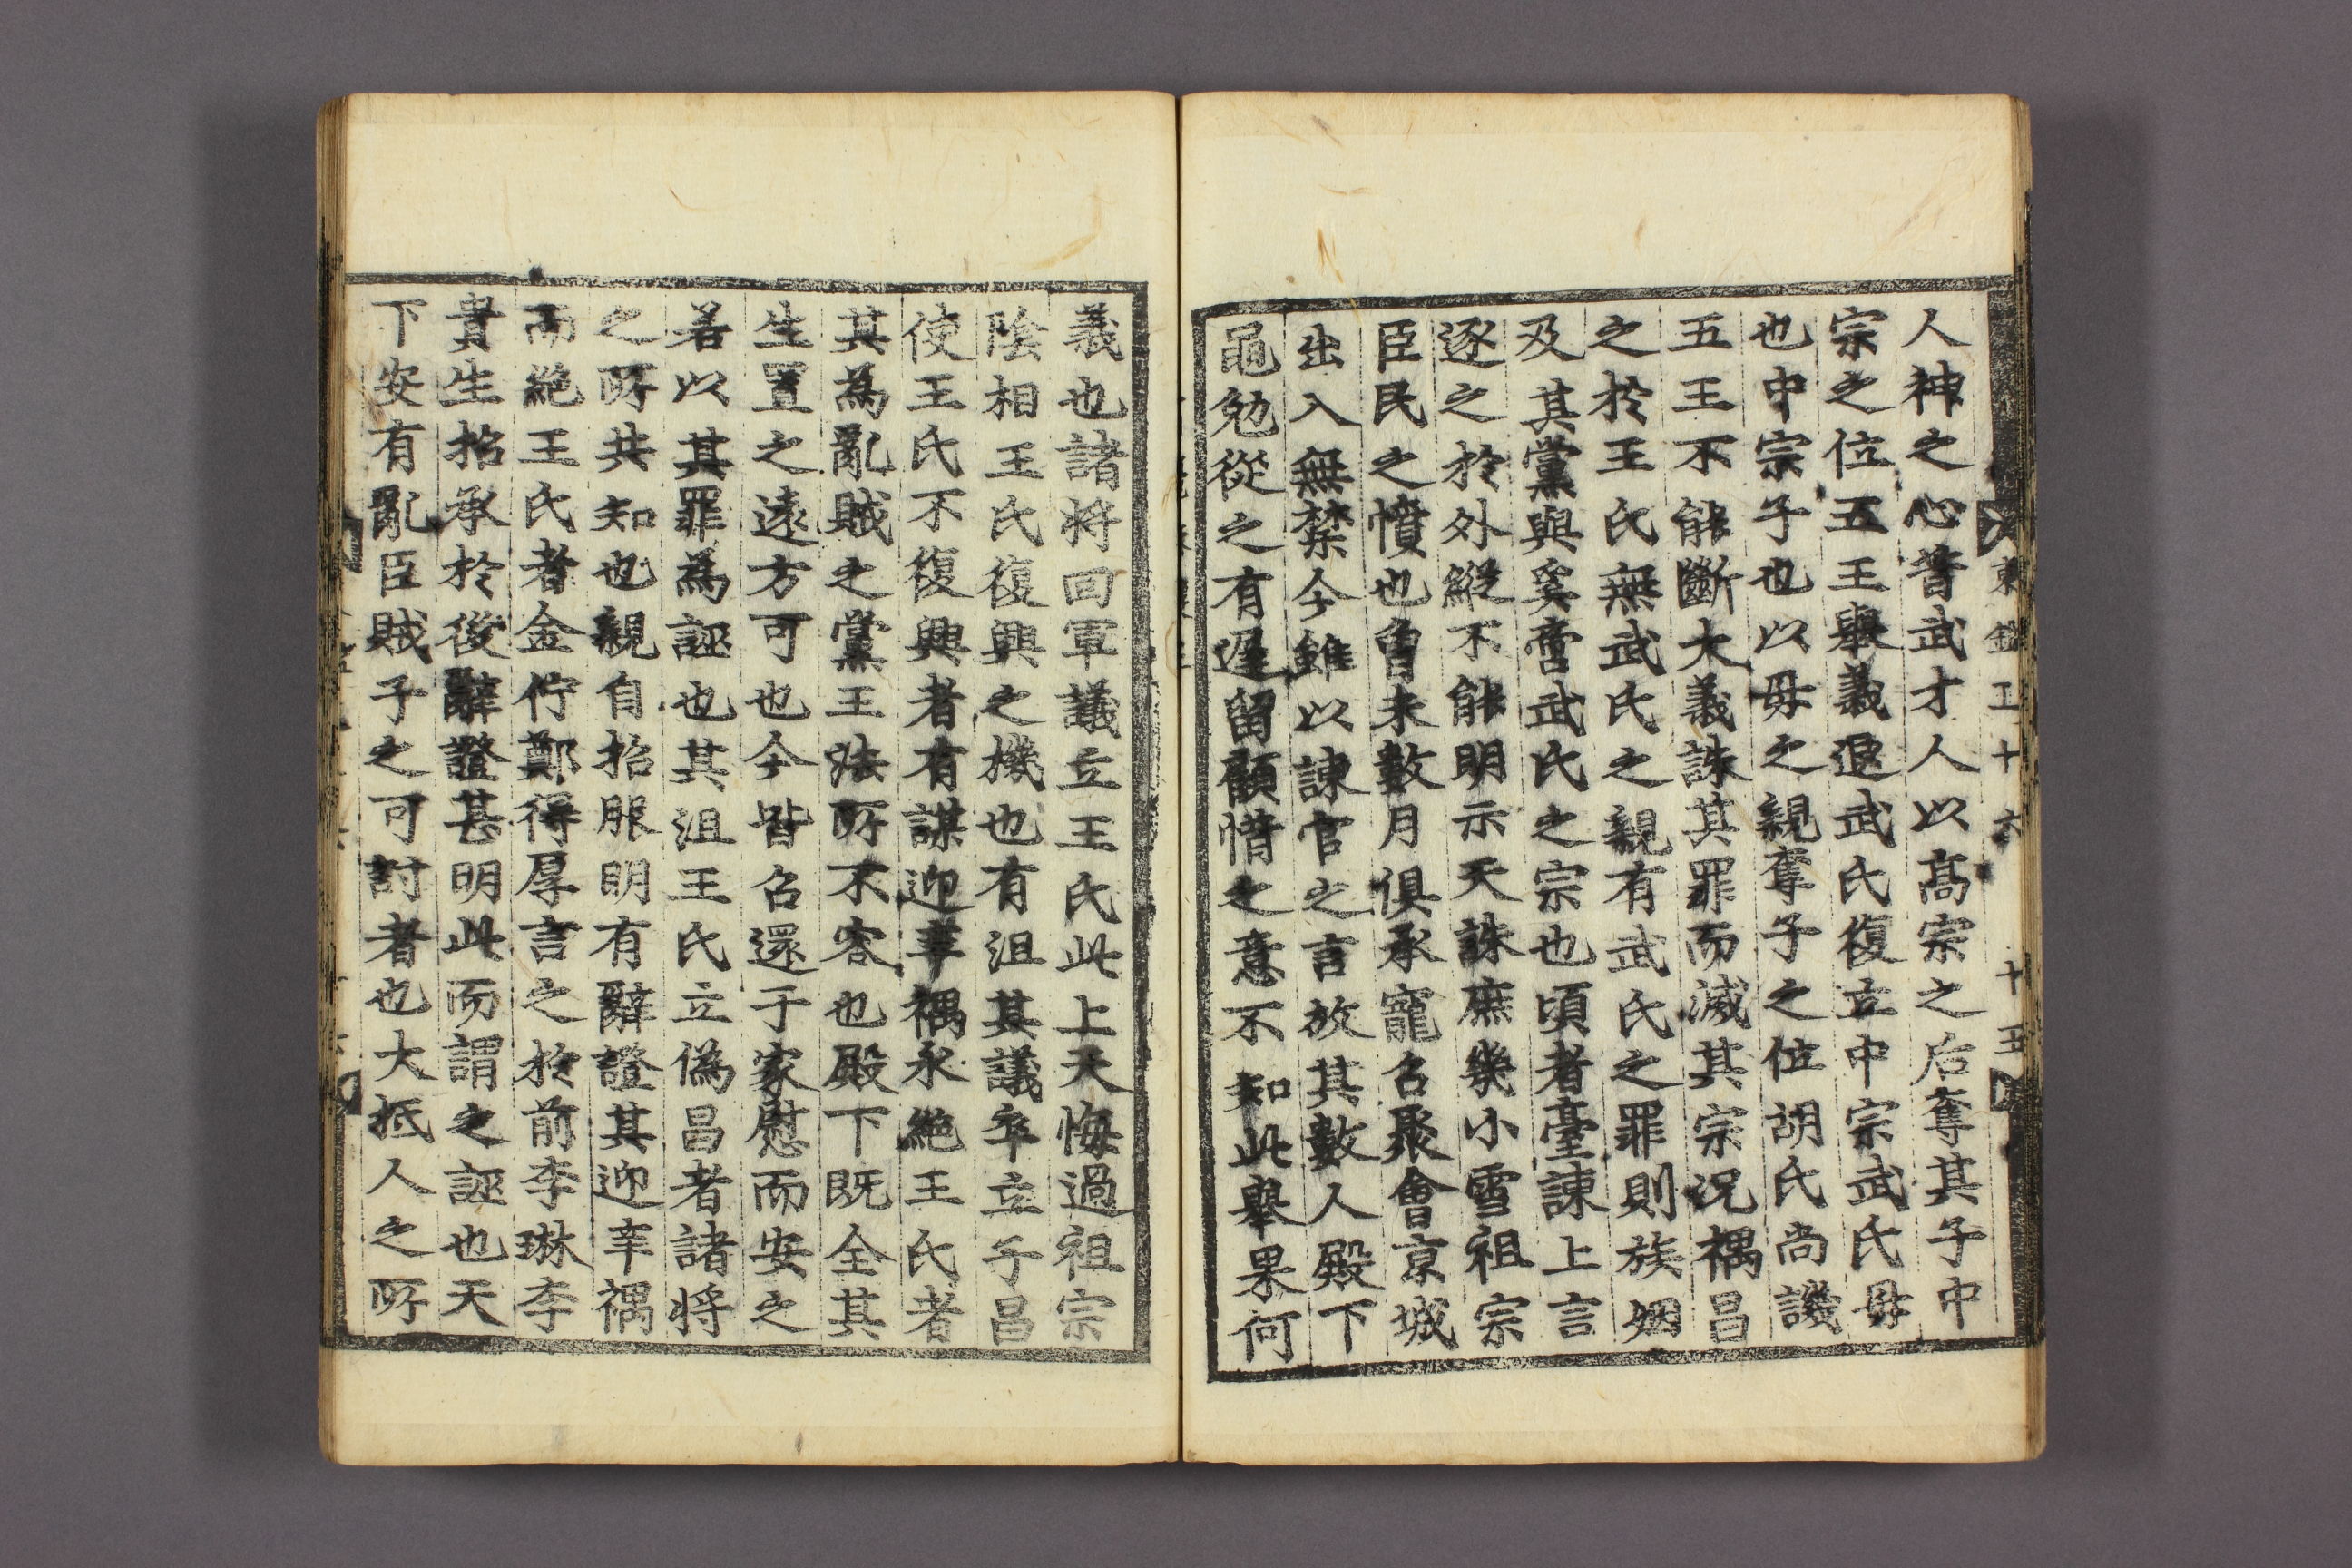 東鑑五十六 十五
人神之心昔武才人以高宗之后奪其子中
宗之位五王擧義退武氏復立中宗武氏母
也中宗子也以母之親奪子之位胡氏尚譏
五王不能斷大義誅其罪而滅其宗况禑昌
之於王氏無武氏之親有武氏之罪則族姻
及其黨與奚啻武氏之宗也頃者臺諫上言
逐之於外縱不能明示天誅庶幾小雪祖宗
臣民之憤也曾未數月俱承寵召聚會京城
出入無禁今雖以諫官之言放其數人殿下
黽勉從之有遲留顧惜之意不知此擧果何
義也諸将回軍議立王氏此上天悔過祖宗
陰相王氏復興之機也有沮其議卒立子昌
使王氏不復興者有謀迎辛禑永絶王氏者
其爲亂賊之黨王法所不容也殿下既全其
生置之遠方可也今皆召還于家慰而安之
若以其罪爲誣也其沮王氏立僞昌者諸将
之所共知也親自招服明有辭證其迎辛禑
而絶王氏者金佇鄭得厚言之於前李琳李
貴生招承於後辭證甚明此而謂之誣也天
下安有亂臣賊子之可討者也大抵人之所